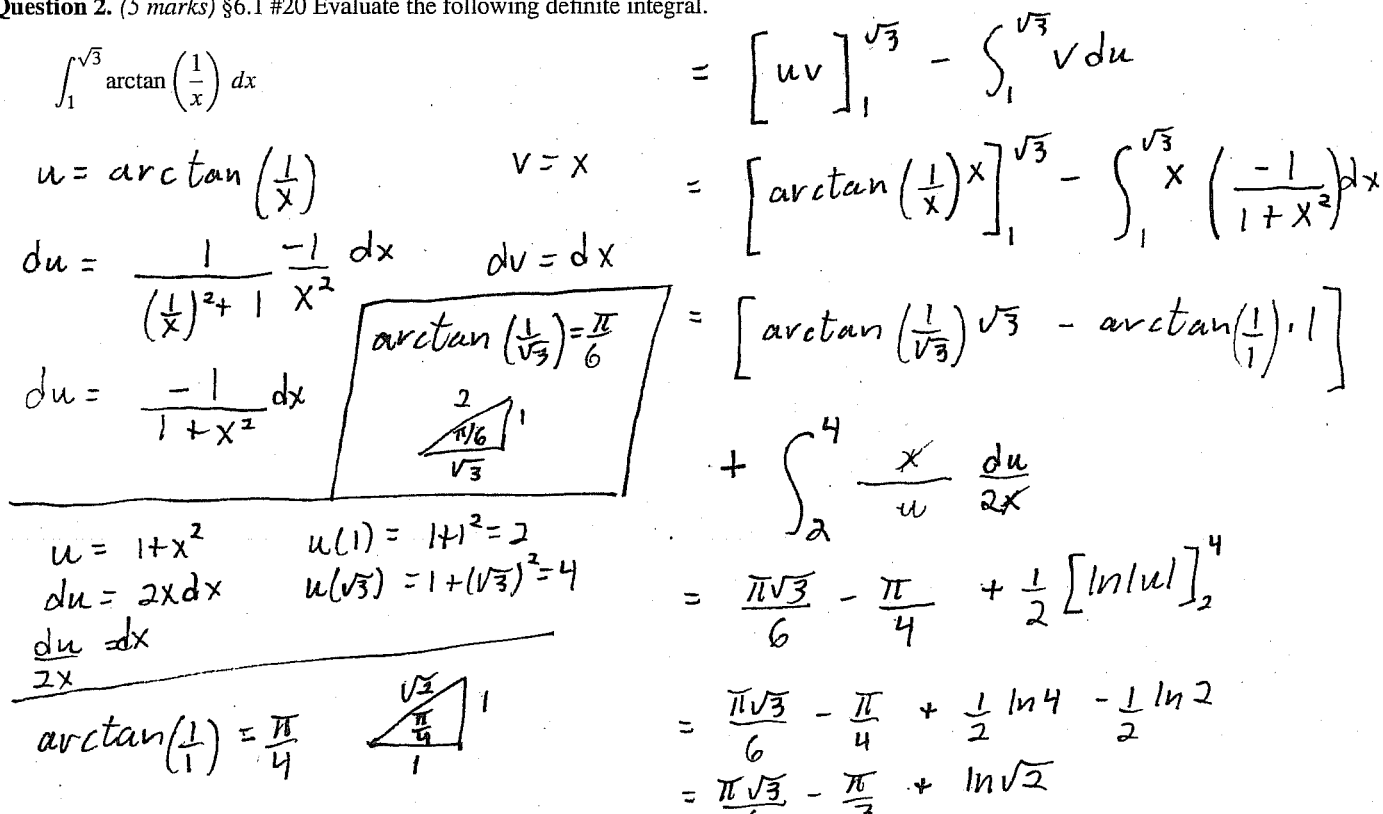 Question 2. (5 marks) §6.1 #20 Evaluate the following definite integral.
∫₁^√3 arctan (1/x) dx
u = arctan (1/x)
v = x
du = 1/((1/x)² + 1) · -1/x² dx
dv = dx
du = -1/(1 + x²) dx
arctan (1/√3) = π/6
2
1
π/6
√3
u = 1+x²
u(1) = 1+1² = 2
du = 2x dx
u(√3) = 1 + (√3)² = 4
du/2x = dx
arctan (1/1) = π/4
√2
1
π/4
1
= [uv]₁^√3 - ∫₁^√3 v du
= [arctan (1/x) x]₁^√3 - ∫₁^√3 x (-1/(1 + x²)) dx
= [arctan (1/√3) √3 - arctan (1/1) · 1]
+ ∫₂⁴ x/u du/2x
= π√3/6 - π/4 + 1/2 [ln|u|]₂⁴
= π√3/6 - π/4 + 1/2 ln 4 - 1/2 ln 2
= π√3 - π + ln √2